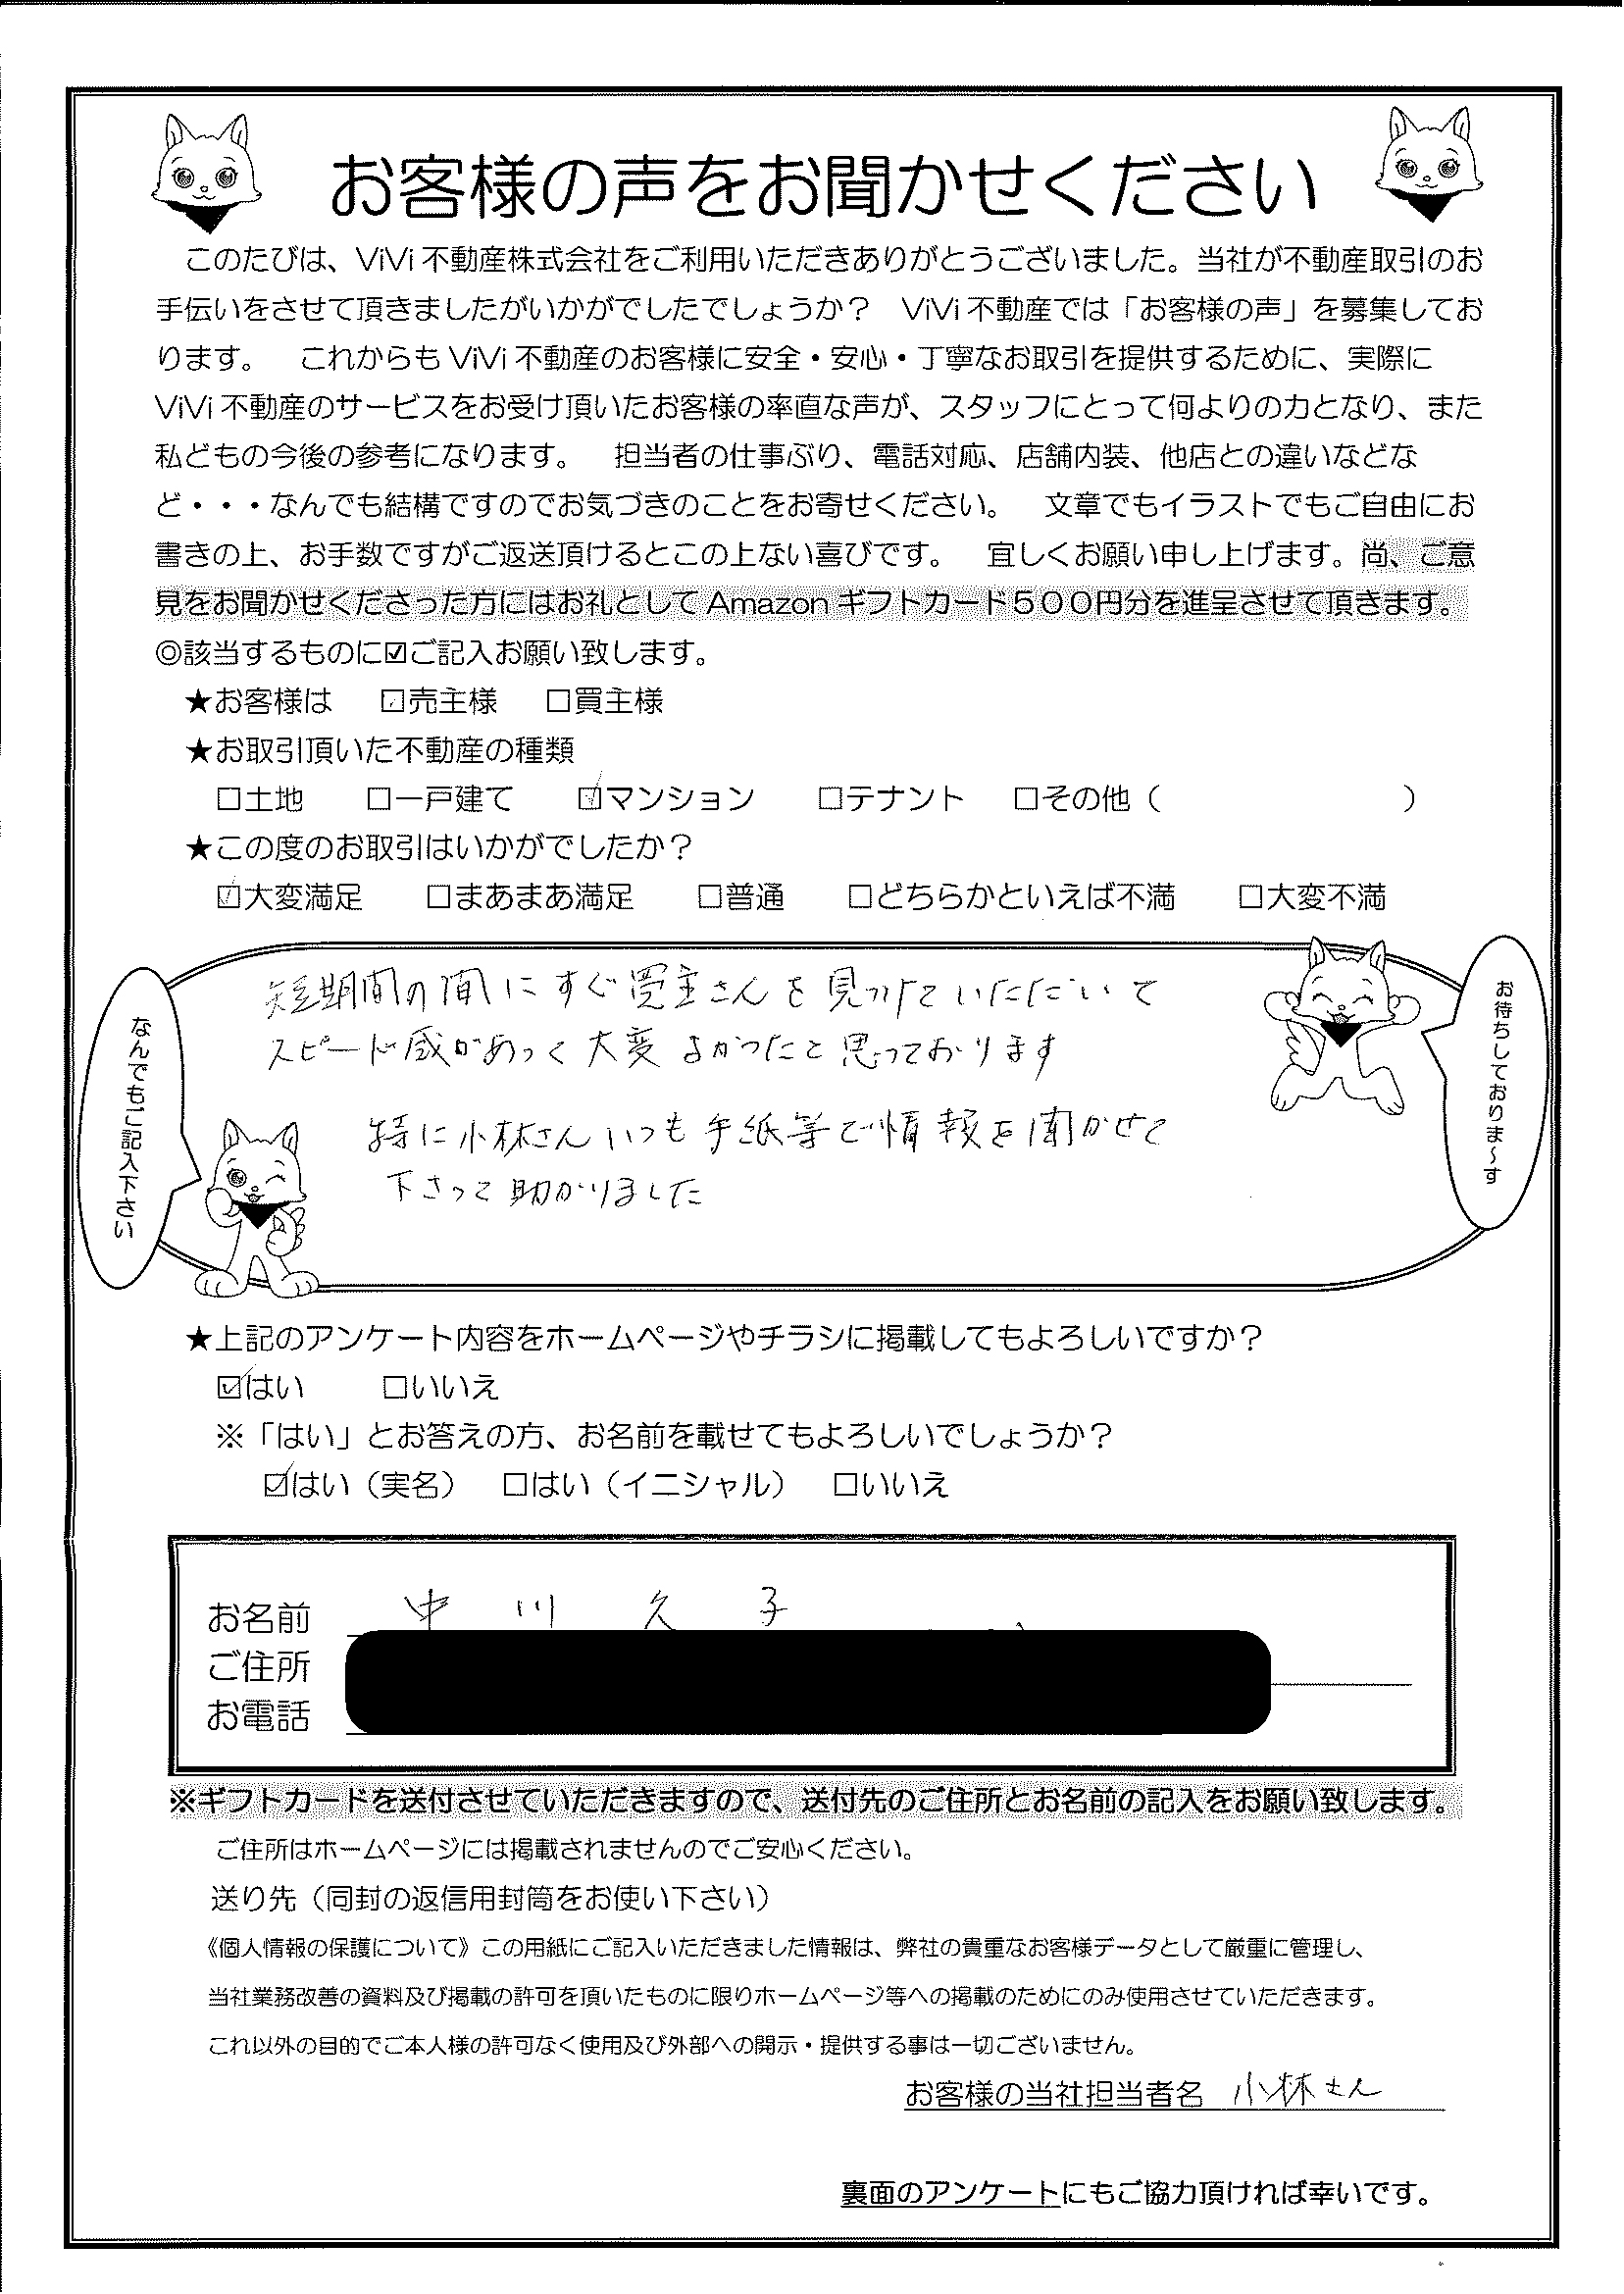 お客様の声をお聞かせください
このたびは、ViVi不動産株式会社をご利用いただきありがとうございました。当社が不動産取引のお
手伝いをさせて頂きましたがいかがでしたでしょうか？　ViVi不動産では「お客様の声」を募集してお
ります。　これからもViVi不動産のお客様に安全・安心・丁寧なお取引を提供するために、実際に
ViVi不動産のサービスをお受け頂いたお客様の率直な声が、スタッフにとって何よりの力となり、また
私どもの今後の参考になります。　担当者の仕事ぶり、電話対応、店舗内装、他店との違いなどな
ど・・・なんでも結構ですのでお気づきのことをお寄せください。　文章でもイラストでもご自由にお
書きの上、お手数ですがご返送頂けるとこの上ない喜びです。　宜しくお願い申し上げます。尚、ご意
見をお聞かせくださった方にはお礼としてAmazonギフトカード５００円分を進呈させて頂きます。
◎該当するものに☑ご記入お願い致します。
★お客様は　☑売主様　□買主様
★お取引頂いた不動産の種類
□土地　□一戸建て　☑マンション　□テナント　□その他（　　　　　　　　）
★この度のお取引はいかがでしたか？
☑大変満足　□まあまあ満足　□普通　□どちらかといえば不満　□大変不満
なんでもご記入下さい
お待ちしておりま～す
短期間の間にすぐ買主さんを見つけていただいて
スピード感があって大変よかったと思っております
特に小林さんいつも手紙等で情報を聞かせて
下さって助かりました
★上記のアンケート内容をホームページやチラシに掲載してもよろしいですか？
☑はい　□いいえ
※「はい」とお答えの方、お名前を載せてもよろしいでしょうか？
☑はい（実名）　□はい（イニシャル）　□いいえ
お名前　中川久子
ご住所
お電話
※ギフトカードを送付させていただきますので、送付先のご住所とお名前の記入をお願い致します。
ご住所はホームページには掲載されませんのでご安心ください。
送り先（同封の返信用封筒をお使い下さい）
《個人情報の保護について》この用紙にご記入いただきました情報は、弊社の貴重なお客様データとして厳重に管理し、
当社業務改善の資料及び掲載の許可を頂いたものに限りホームページ等への掲載のためにのみ使用させていただきます。
これ以外の目的でご本人様の許可なく使用及び外部への開示・提供する事は一切ございません。
お客様の当社担当者名　小林さん
裏面のアンケートにもご協力頂ければ幸いです。